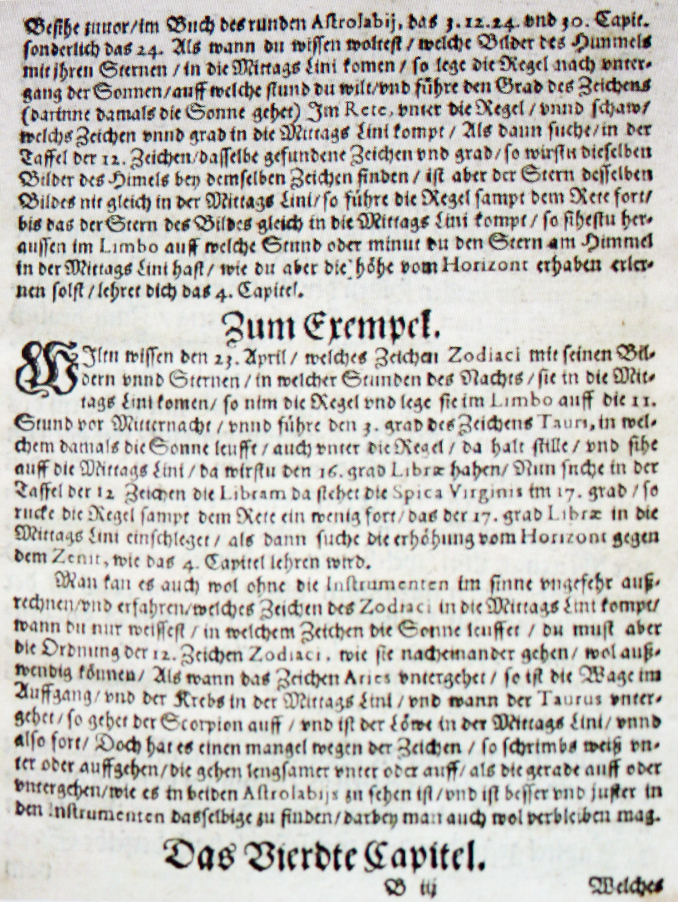 Besihe zuuor/im Buch des runden Astrolabij, das 3.12.24. vnd 30. Capit.
sonderlich das 24. Als wann du wissen woltest/welche Bilder des Himmels
mit jhren Sternen/in die Mittags Lini komen/so lege die Regel nach vnter-
gang der Sonnen/auff welche stund du wilt/vnd führe den Grad des Zeichens
(darinne damals die Sonne gehet) Im Rete, vnter die Regel/vnnd schaw/
welchs Zeichen vnnd grad in die Mittags Lini kompt/Als dann suche/in der
Taffel der 12. Zeichen/dasselbe gefundene Zeichen vnd grad/so wirstu dieselben
Bilder des Himels bey demselben Zeichen finden/ist aber der Stern desselben
Bildes nit gleich in der Mittags Lini/so führe die Regel sampt dem Rete fort/
bis das der Stern des Bildes gleich in die Mittags Lini kompt/so sihestu her-
aussen im Limbo auff welche Stund oder minut du den Stern am Himmel
in der Mittags Lini hast/wie du aber die höhe vom Horizont erhaben erler-
nen solst/lehret dich das 4. Capitel.
Zum Exempel.
WIltu wissen den 23. April/welches Zeichen Zodiaci mit seinen Bil-
dern vnnd Sternen/in welcher Stunden des Nachts/sie in die Mit-
tags Lini komen/so nim die Regel vnd lege sie im Limbo auff die 11.
Stund vor Mitternacht/vnnd führe den 3. grad des Zeichens Tauri, in wel-
chem damals die Sonne leufft/auch vnter die Regel/da halt stille/vnd sihe
auff die Mittags Lini/da wirstu den 16. grad Libræ haben/Nun suche in der
Taffel der 12 Zeichen die Libram da stehet die Spica Virginis im 17. grad/so
rucke die Regel sampt dem Rete ein wenig fort/das der 17. grad Libræ in die
Mittags Lini einschleget/als dann suche die erhöhung vom Horizont gegen
dem Zenit, wie das 4. Capitel lehren wird.
Man kan es auch wol ohne die Instrumenten im sinne vngefehr auß-
rechnen/vnd erfahren/welches Zeichen des Zodiaci in die Mittags Lini kompt/
wann du nur weissest/in welchem Zeichen die Sonne leuffet/du must aber
die Ordnung der 12. Zeichen Zodiaci, wie sie nacheinander gehen/wol auß-
wendig können/Als wann das Zeichen Aries vntergehet/so ist die Wage im
Auffgang/vnd der Krebs in der Mittags Lini/vnd wann der Taurus vnter-
gehet/so gehet der Scorpion auff/vnd ist der Löwe in der Mittags Lini/vnnd
also fort/Doch hat es einen mangel wegen der Zeichen/so schrimbs weiß vn-
ter oder auffgehen/die gehen lengsamer vnter oder auff/als die gerade auff oder
vntergehen/wie es in beiden Astrolabijs zu sehen ist/vnd ist besser vnd juster in
den Instrumenten dasselbige zu finden/darbey man auch wol verbleiben mag.
Das Vierdte Capitel.
B iij Welches